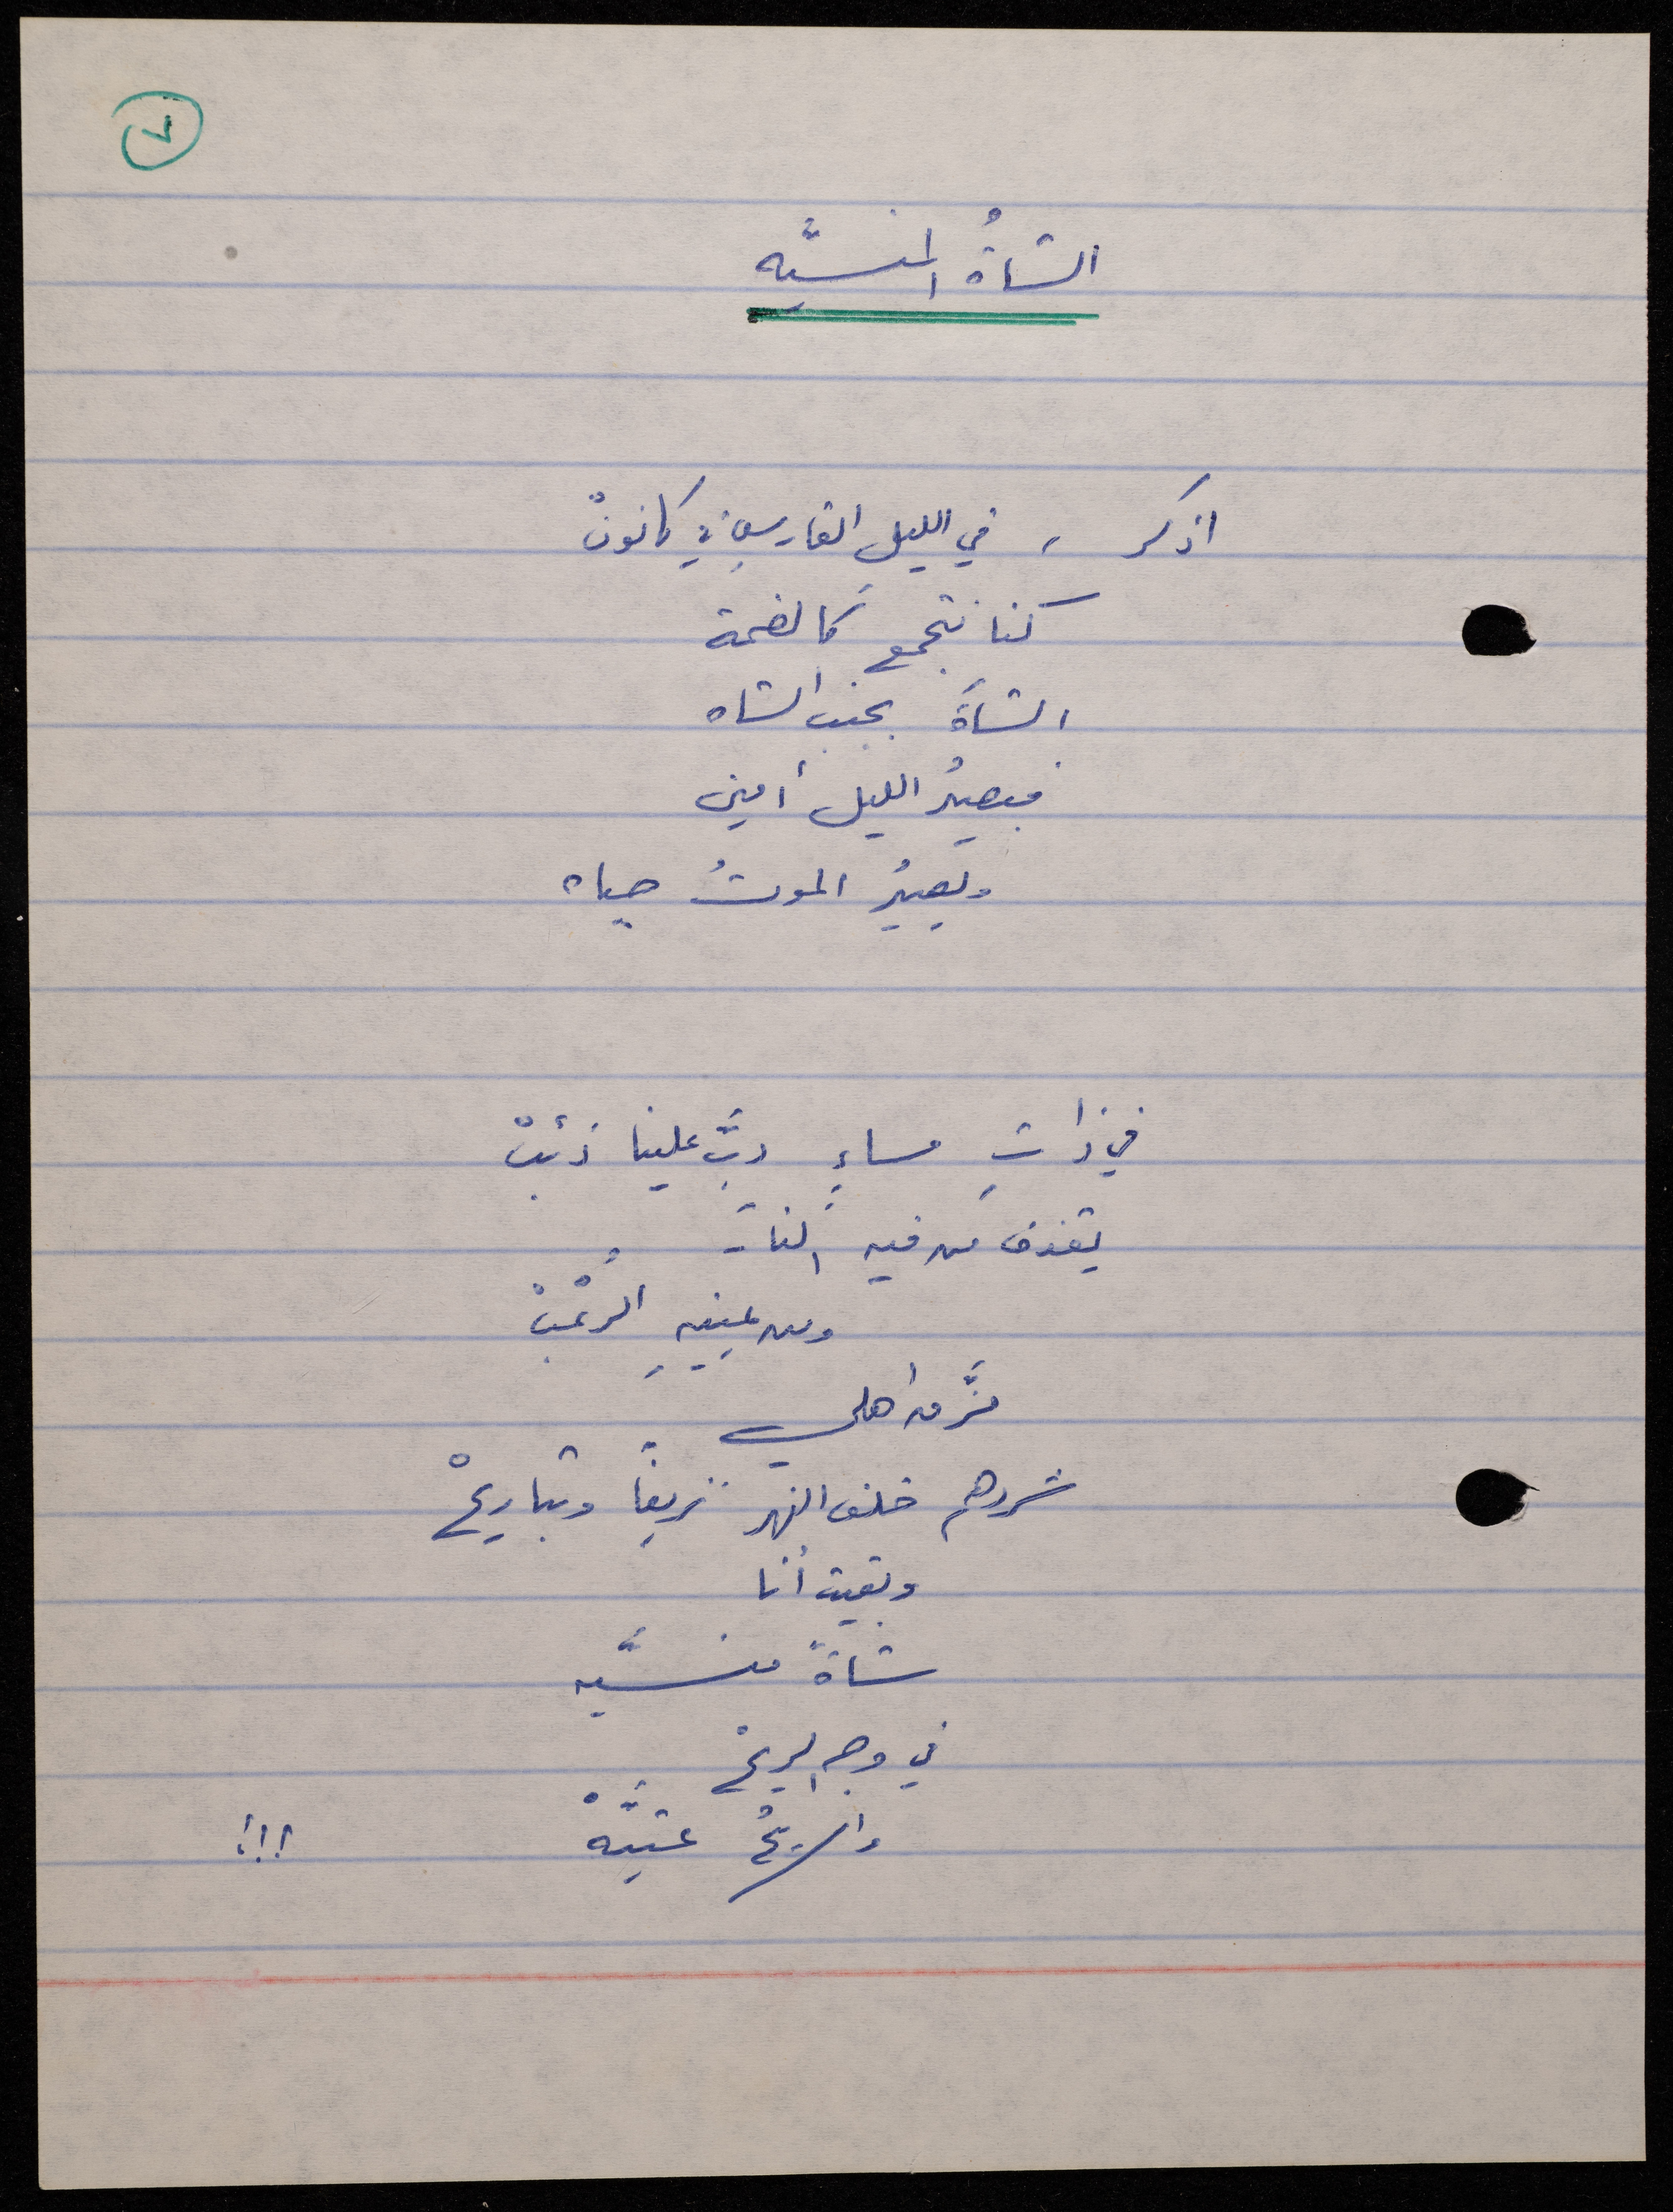 ٧
الشاةُ المنسيَّه
اذكر ، في الليلِ القارسِ في كانونْ
كنا نتجمع
الشاةَ بجنب الشاه
فيصيرُ الليل أمين
ويصيرُ الموتُ حياه
في ذاتِ مساءٍ دبَّ علينا ذئبْ
يقذف من فيه النار
ومن عينيهِ الرُعْبْ
مزَّق اهلي
شردهم خلف النهر نزيفاً وتباريحْ
وبقيت أنا
شاةً منسيَّه
في وجه الريحْ
والريحُ عتيَّهْ !!!